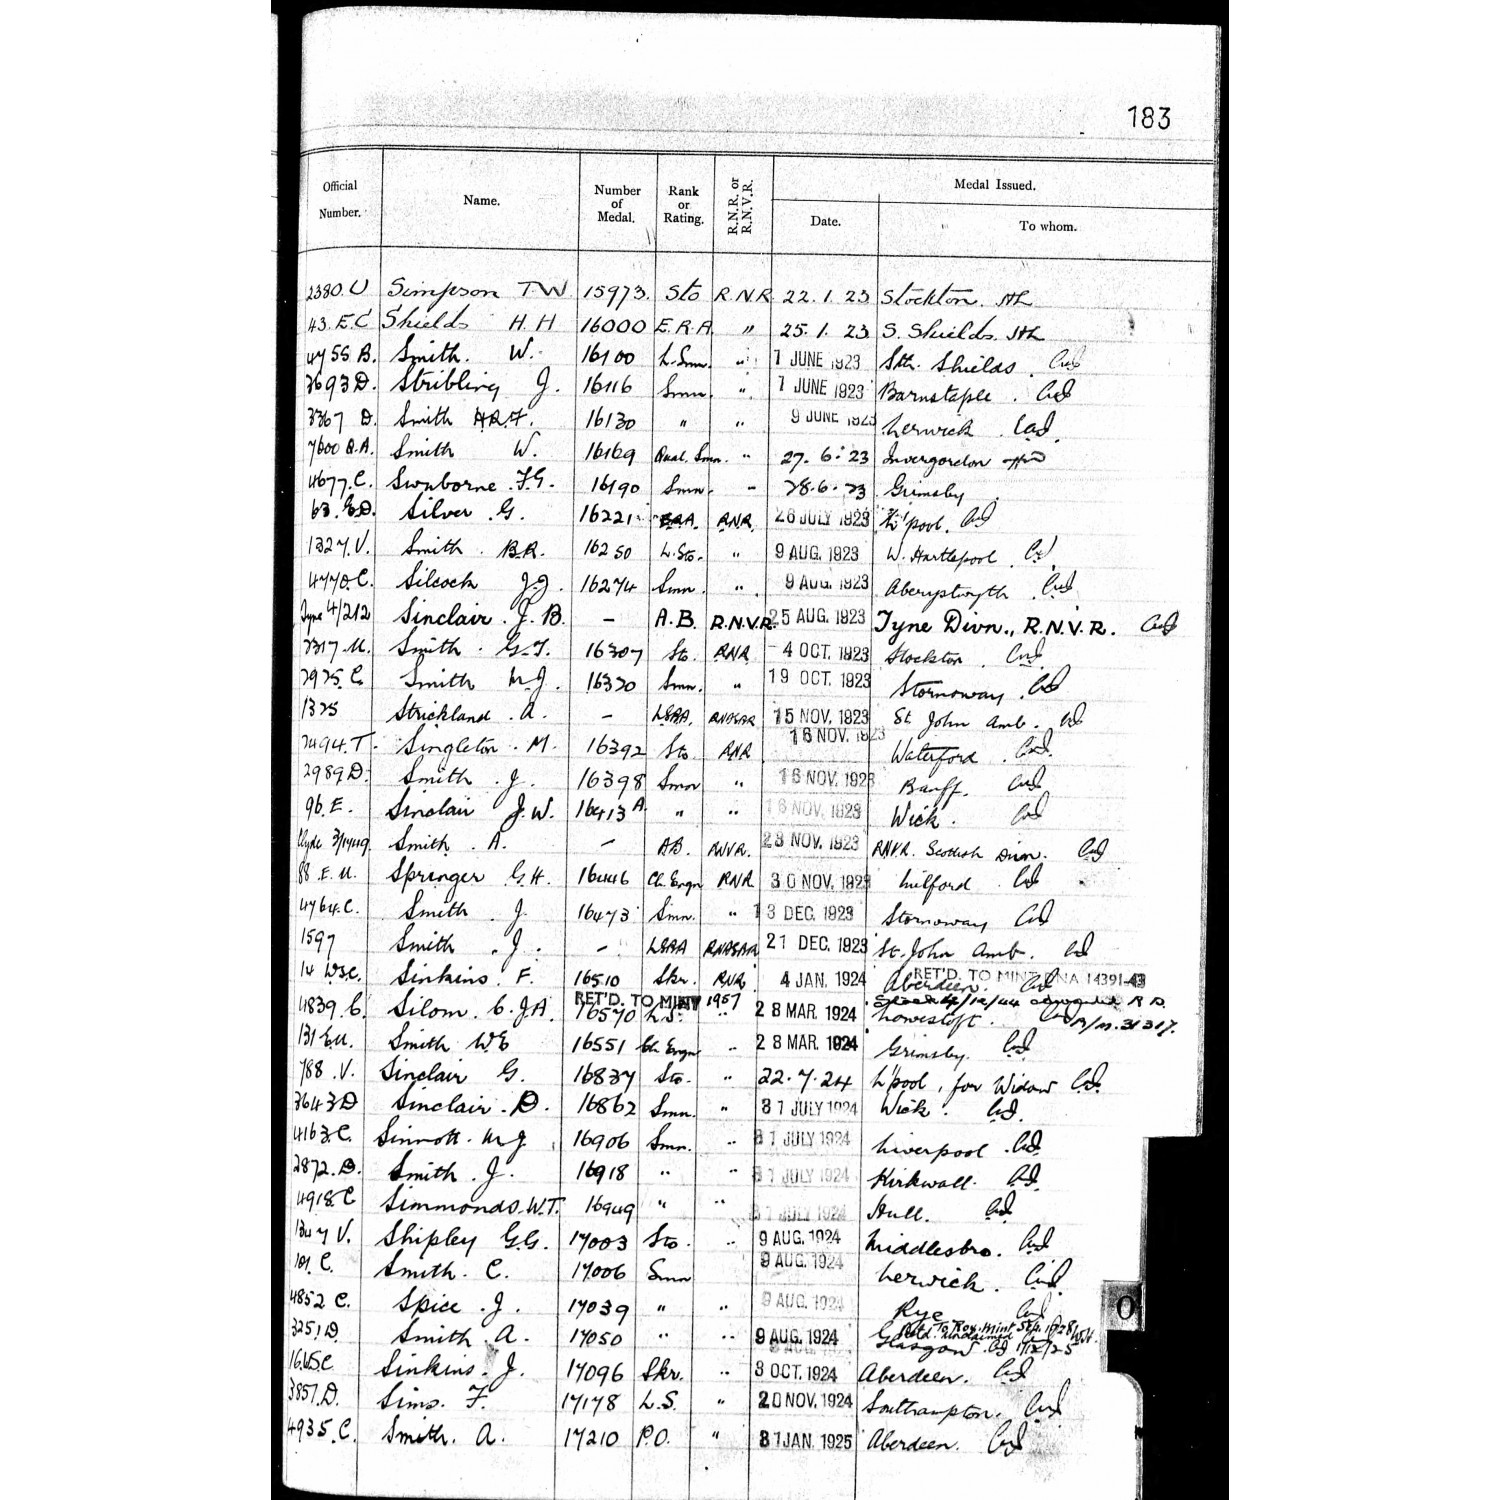 183
Official Number. Name. Number of Medal. Rank or Rating. R.N.R. or R.N.V.R. Medal Issued.
Date. To whom.
2380.U Simpson T.W. 15973. Sto R.N.R. 22.1.23 Stockton.
43.E.C Shields H.H 16000 E.R.A. " 25.1.23 S. Shields.
4755 B. Smith. W. 16100 L.Smn. " 7 JUNE 1923 Sth. Shields.
3693 D. Stribling J. 16116 Smn. " 7 JUNE 1923 Barnstaple.
3367 D. Smith H.R.F. 16130 " " 9 JUNE 1923 Lerwick.
7600 B.A. Smith W. 16169 Qual. Smn. " 27.6.23 Invergordon
4677.C. Swnborne F.G. 16190 Smn. - 28.6.23 Grimsby.
63.E.D. Silver G. 16221 E.R.A. RNR. 26 JULY 1923 L'pool.
1327.V. Smith. B.R. 16250 L.Sto. " 9 AUG. 1923 W. Hartlepool.
4770.C. Silcock J.J. 16274 Smn. " 9 AUG. 1923 Aberystwyth.
Tyne 4/212 Sinclair. J.B. - A.B. R.N.V.R. 25 AUG. 1923 Tyne Divn., R.N.V.R.
2317.U. Smith. G.T. 16307 Sto. RNR 4 OCT. 1923 Stockton.
2925.C. Smith M.J. 16320 Smn. " 19 OCT. 1923 Stornoway.
1325 Strickland. A. - LSBA. RNASBR 15 NOV. 1923 St. John Amb.
2494.T. Singleton. M. 16392 Sto. RNR 16 NOV. 1923 Waterford.
2989 D. Smith. J. 16398 Smn " 16 NOV. 1923 Banff.
96.E. Sinclair J.W. 16413A " " 16 NOV. 1923 Wick.
Clyde 3/1449. Smith. A. - AB. RNVR. 23 NOV. 1923 RNVR. Scottish Divn.
88.E.U. Springer G.H. 16446 Ch.Engr RNR 30 NOV. 1923 Milford.
4764.C. Smith. J. 16473 Smn. " 13 DEC. 1923 Stornoway
1597 Smith. J. - LSBA RNASBR 21 DEC. 1923 St. John Amb.
14 W.S.C. Sinkins. F. 16510 Skr. RNR 4 JAN. 1924 Aberdeen.
RET'D. TO MINT DNA 14391-43
RET'D. TO MINT 1957
4839.C. Silom. C.J.A. 16570 L.S. " 28 MAR. 1924 Lowestoft.
131 E.U. Smith W.E 16551 Ch.Engr " 28 MAR. 1924 Grimsby.
788.V. Sinclair G. 16837 Sto. " 22.7.24 L'pool, for Widow
3643 D Sinclair. D. 16862 Smn. " 31 JULY 1924 Wick.
4163.C. Sinnott. M.J. 16906 Smn. " 31 JULY 1924 Liverpool.
2872.D. Smith. J. 16918 " " 31 JULY 1924 Kirkwall.
4918.C Simmonds. W.T. 16949 " " 31 JULY 1924 Hull.
1347 V. Shipley G.G. 17003 Sto. " 9 AUG. 1924 Middlesbro.
101.C. Smith. C. 17006 Smn 9 AUG. 1924 Lerwick.
4852 C. Spice. J. 17039 " " 9 AUG. 1924 Rye
3251.D. Smith. A. 17050 " " 9 AUG. 1924 Glasgow.
16.W.S.C Sinkins. J. 17096 Skr. " 3 OCT. 1924 Aberdeen.
3857.D. Sims. F. 17178 L.S. " 20 NOV. 1924 Southampton.
4935.C. Smith. A. 17210 P.O. " 31 JAN. 1925 Aberdeen.